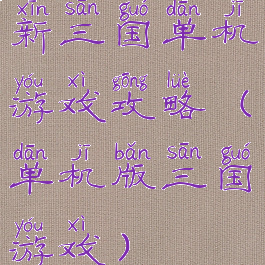 xīn sān guó dān jī
新三国单机
yóu xì gōng lüè
游戏攻略（
dān jī bǎn sān guó
单机版三国
yóu xì
游戏）